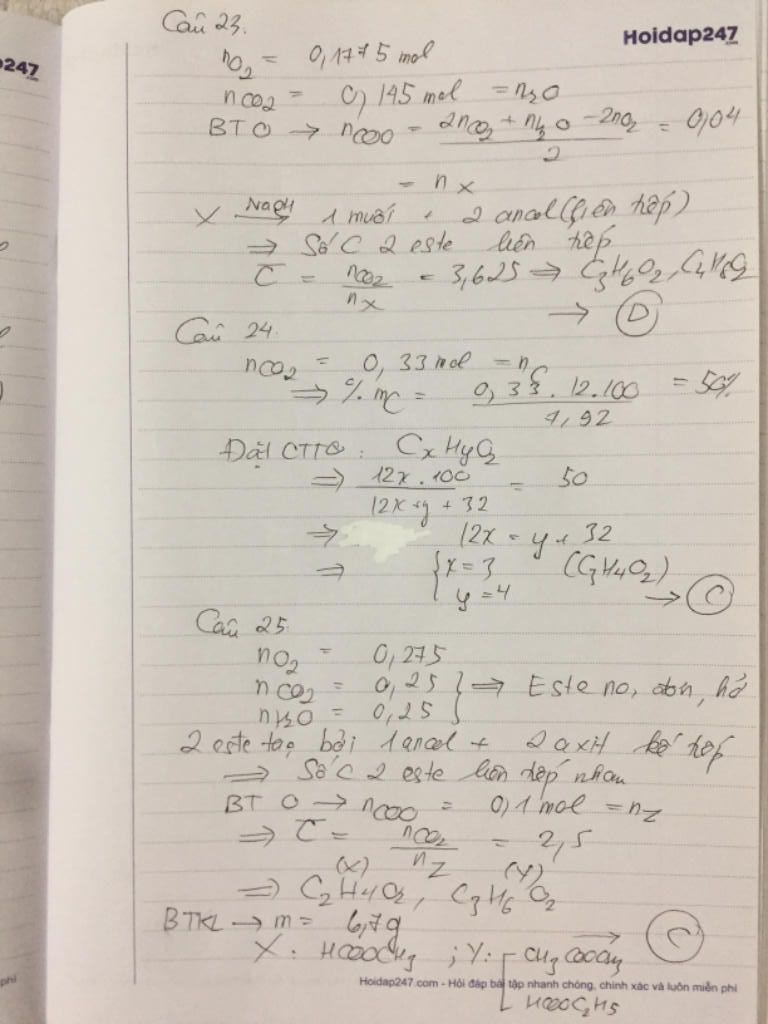 Câu 23.
Hoidap247.com
247.com
nO2 = 0,1775 mol
nCO2 = 0,145 mol = nH2O
BTO → nCOO = (2nCO2 + nH2O - 2nO2)/2 = 0,04
= nX
X —NaOH→ 1 muối + 2 ancol (liên tiếp)
⇒ Số C 2 este liên tiếp
C̅ = nCO2/nX = 3,625 ⇒ C3H6O2, C4H8O2
→ D
Câu 24.
nCO2 = 0,33 mol = nC
⇒ % mC = (0,33.12.100)/7,92 = 50%
Đặt CTTQ: CxHyO2
⇒ (12x.100)/(12x+y+32) = 50
⇒ 12x = y + 32
⇒ { x = 3 (C3H4O2)
y = 4 → C
Câu 25.
nO2 = 0,275
nCO2 = 0,25 } ⇒ Este no, đơn, hở
nH2O = 0,25
2 este tạo bởi 1 ancol + 2 axit kế tiếp
⇒ Số C 2 este liên tiếp nhau
BT O → nCOO = 0,1 mol = nZ
⇒ C̅ = nCO2/nZ = 2,5
(X) (Y)
⇒ C2H4O2, C3H6O2
BTKL → m = 6,7g → C
X: HCOOCH3 ; Y: [ CH3COOCH3
phí
Hoidap247.com - Hỏi đáp bài tập nhanh chóng, chính xác và luôn miễn phí
HCOOC2H5